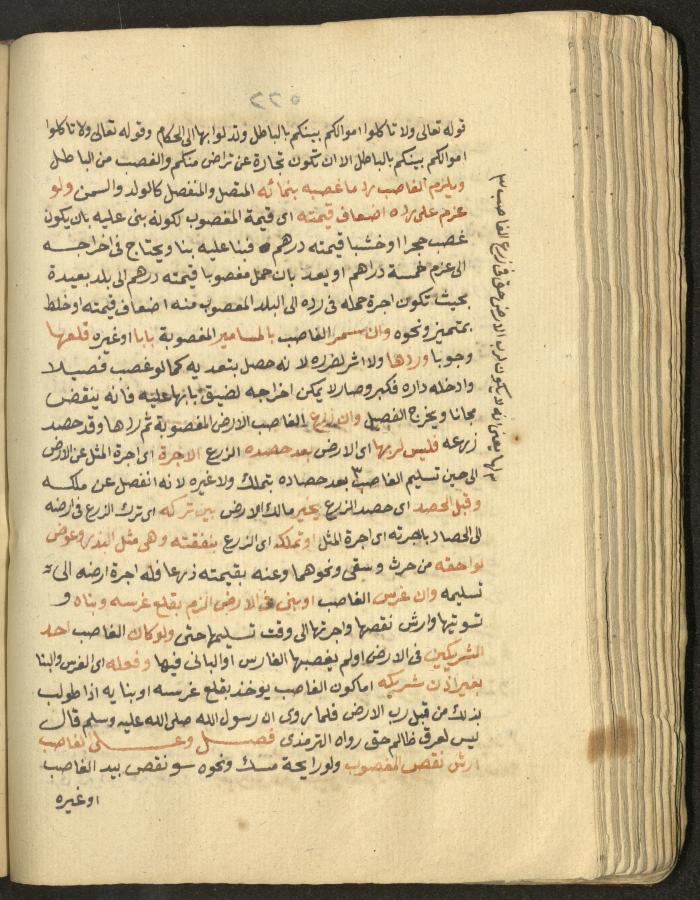 ٥٢٢
قوله تعالى ولا تاكلوا اموالكم بينكم بالباطل وتدلوا بها الى الحكام وقوله تعالى ولا تاكلوا
اموالكم بينكم بالباطل الا ان تكون تجارة عن تراض منكم والغصب من الباطل
ويلزم الغاصب رد ما غصبه بنمائه المتصل والمنفصل كالولد والسمن ولو
غرم على رده اضعاف قيمته اى قيمة المغصوب لكونه بنى عليه بان يكون
غصب حجرا او خشبا قيمته درهم فبنا عليه بنا ويحتاج فى اخراجه
الى غرم خمسة دراهم او بعد بان حمل مغصوبا قيمته درهم الى بلد بعيدة
بحيث تكون اجرة حمله فى رده الى البلد المغصوب منه اضعاف قيمته او خلط
بمتميز ونحوه وان سمر الغاصب بالمسامير المغصوبة بابا او غيره قلعها
وجوبا وردها ولا اثر لضرره لانه حصل بتعديه كما لو غصب فصيلا
وادخله داره فكبر وصار لا يمكن اخراجه لضيق بابها عليه فانه ينقض
مجانا ويخرج الفصيل وان زرع الغاصب الارض المغصوبة ثم ردها وقد حصد
زرعه فليس لربها اى الارض بعد حصده الزرع الا جرة اى اجرة المثل عن الارض
الى حين تسليم الغاصب ٣ بعد حصاده بتملك ولا غيره لانه انفصل عن ملكه
وقبل الحصد اى حصد الزرع يخير مالك الارض بين تركه اى ترك الزرع فى ارضه
الى الحصاد باجرته اى اجرة المثل او تملكه اى الزرع بنفقته وهى مثل البذر وعوض
لواحقه من حرث وسقى ونحوهما وعنه بقيمته زرعا فله اجرة ارضه الى
تسليمه وان غرس الغاصب او بنى فى الارض الزم بقلع غرسه وبناه و
تسويتها وارش نقصها واجرتها الى وقت تسليمها حتى ولو كان الغاصب احد
الشريكين فى الارض او لم يغصبها الغارس او البانى فيها وفعله اى الغرس والبنا
بغير اذن شريكه اما كون الغاصب يوخذ بقلع غرسه او بنايه اذا طولب
بذلك من قبل رب الارض فلما روى ان رسول الله صلى الله عليه وسلم قال
ليس لعرق ظالم حق رواه الترمذى فصل وعلى الغاصب
ارش نقص المغصوب ولو رايحة مسك ونحوه سو نقص بيد الغاصب
او غيره
٣ لها يعنى انه لا يكون لرب الارض حق فى زرع الغاصب ٣